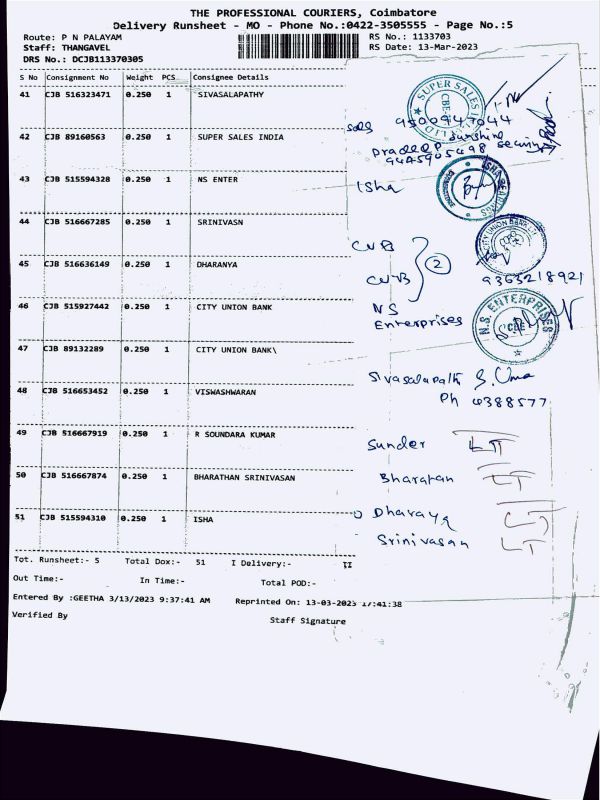 THE PROFESSIONAL COURIERS, Coimbatore
Delivery Runsheet - MO - Phone No.:0422-3505555 - Page No.:5
Route: P N PALAYAM
RS No.: 1133703
Staff: THANGAVEL
RS Date: 13-Mar-2023
DRS No.: DCJB113370305
S No Consignment No Weight PCS Consignee Details
41 CJB 516323471 0.250 1 SIVASALAPATHY
42 CJB 89160563 0.250 1 SUPER SALES INDIA
43 CJB 515594328 0.250 1 NS ENTER
44 CJB 516667285 0.250 1 SRINIVASN
45 CJB 516636149 0.250 1 DHARANYA
46 CJB 515927442 0.250 1 CITY UNION BANK
47 CJB 89132289 0.250 1 CITY UNION BANK\
48 CJB 516653452 0.250 1 VISWASHWARAN
49 CJB 516667919 0.250 1 R SOUNDARA KUMAR
50 CJB 516667874 0.250 1 BHARATHAN SRINIVASAN
51 CJB 515594310 0.250 1 ISHA
SUPER SALES
CBE
LTD
9500947044
Sunshine
Pradeep
9445905498
Isha
CUB
CUB
2
CITY UNION BANK LTD
9363218921
NS
Enterprises
N.S. ENTERPRISES
CBE
Sivasalapath S. Uma
Ph 4388577
Sunder LT
Bharatan LT
Dharaya LT
Srinivasan LT
Tot. Runsheet:- 5 Total Dox:- 51 I Delivery:- II
Out Time:- In Time:- Total POD:-
Entered By :GEETHA 3/13/2023 9:37:41 AM Reprinted On: 13-03-2023 17:41:38
Verified By
Staff Signature